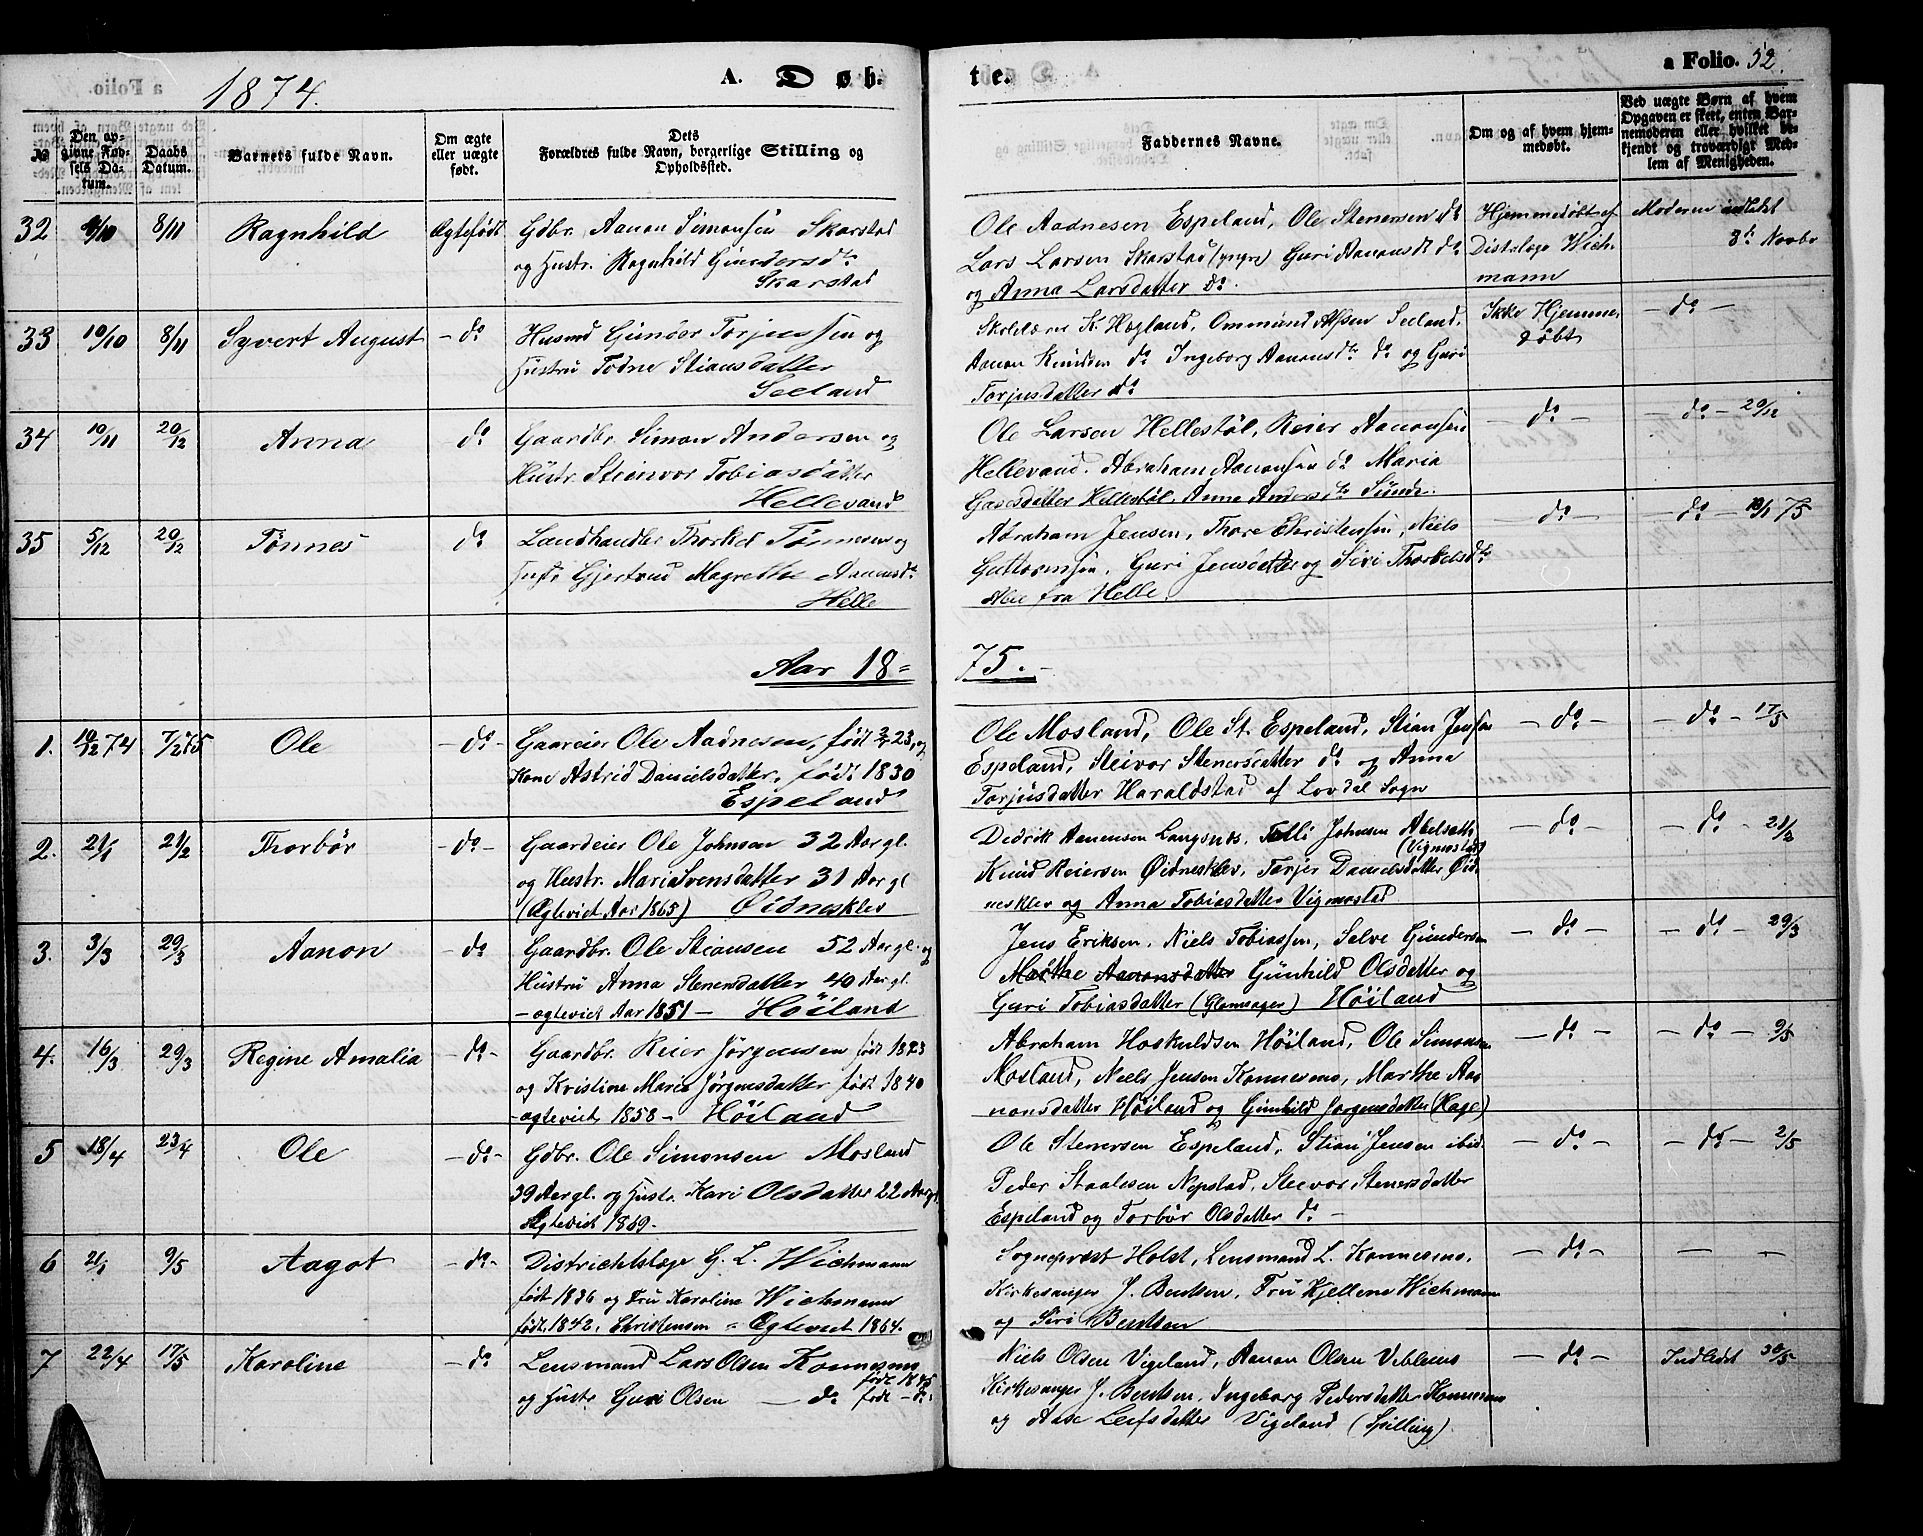 1874.
A. Døb-
te.
a Folio. 52.
№
Den opgivne Fødsels Datum.
Daabs Datum.
Barnets fulde Navn.
Om ægte eller uægte født.
Dets Forældres fulde Navn, borgerlige Stilling og Opholdssted.
Faddernes Navne.
Om og af hvem hjemmedøbt.
Ved uægte Børn af hvem Opgaven er skeet, enten Barnemoderen eller hvilket bekjendt og troværdigt Medlem af Menigheden.
32 9/10 8/11 Ragnhild Ægtefødt Gdbr. Aanon Simonsen Skarstad
og Hustr. Ragnhild Gundersdtr
Skarstad
Ole Aadnesen Espeland, Ole Stenersen do
Lars Larsen Skarstad (yngre) Guri Aanonsdt do
og Anna Larsdatter do.
Hjemmedøbt af
Distslæge Wich-
mann
Moderen indledt
8de Novbr
33 10/10 8/11 Syvert August - do Husmd Gunder Torjussen og
Hustru Todne Stiansdatter
Seeland
Skolelærer K. Høgland, Ommund Alfsen Seeland,
Aanon Knudsen do Ingeborg Aanonsdtr do og Guri
Torjusdatter do
Ikke Hjemme-
døbt
- do -
34 10/11 20/12 Anna do Gaardbr. Simon Andersen og
Hustr. Steinvor Tobiasdatter
Hellevand
Ole Larsen Hellestøl, Reier Aanonsen
Hellevand. Abraham Aanonsen do Maria
Hellestøl. Anne Andersdtr Sunde.
- do -
- do - 20/12
35 5/12 20/12 Tønnes do Landhandler Thorkel Tønnesen og
Hustr Gjertrud Magrethe Aanonsdtr
Helle
Abraham Jensen, Thore Christensen, Niels
Guttormsen, Guri Jensdatter og Siri Thorkelsdtr
Alle fra Helle.
- do -
- do - 10/1 75
Aar 18=
75.-
1. 19/12 74 7/2 75 Ole - do - Gaareier Ole Aadnesen, født 23, og
Kone Astrid Danielsdatter, født 1830
Espeland
Ole Mosland, Ole St. Espeland, Stian Jensen
Espeland, Steivor Stenersdatter do og Anna
Torjusdatter Haraldstad af Lovdal Sogn
- do -
- do - 17/3
2. 21/1 21/2 Thorbør - do - Gaardeier Ole Johnson 32 Aar gl.
og Hustr. Maria Svensdatter 31 Aar gl
(Ægteviet Aar 1865) Øidneskler
Didrik Aanensen Langsnes, Johnsen Abelseth
(Vigmostad)
Knud Reiersen Øidneskler, Torjer Danielsdatter Øid-
neskler og Anna Tobiasdatter Vigmostad
- do -
- do - 21/2
3. 3/3 29/3 Aanon - do Gaardbr. Ole Stiansen 52 Aar gl. og
Hustru Anna Stenersdatter 40 Aar gl.
- ægteviet Aar 1851 - Høiland
Jens Eriksen, Niels Tobiassen, Salve Gundersen
Marthe Aanonsdatter Gunhild Olsdatter og
Guri Tobiasdatter (Glomsager) Høiland
- do -
- do - 29/3
4. 16/3 29/3 Regine Amalia - do - Gaardbr. Reier Jørgensen født 1823
og Kristine Marie Jørgensdatter født 1840
- ægteviet 1858 - Høiland
Abraham Hoskuldsen Høiland, Ole Simonsen
Mosland, Niels Jensen Konnesmo, Marthe Aa-
nonsdatter Høiland og Gunhild Jørgensdatter (Hage)
- do -
- do - 9/5
5 18/4 23/4 Ole - do - Gdbr. Ole Simonsen Mosland
39 Aar gl. og Hustr. Kari Olsdatter 22 Aar gl
Ægteviet 1869.
Ole Stenersen Espeland, Stian Jensen ibid.
Peder Staalesen Nopstad, Steevor Stenersdatter
Espeland og Torbør Olsdatter do -
- do -
- do - 2/5
6 21/1 9/5 Aagot - do - Districhtslæge G. L. Wichmann
født 1836 og Fru Karoline Wichmann
født 1842, Christensen = Ægteviet 1864.
Sognepræst Holst, Lensmand L. Konnesmo,
Kirkesanger J. Bentsen, Fru Kjellena Wichmann
og Siri Bentsen
- do -
- -
7 22/4 17/5 Karoline - do Lensmand Lars Olsen Konnesmo
født 1845
og Hustr Guri Olsen - do født - do
Niels Olsen Vigeland, Aanon Olsen Veblens
Kirkesanger J. Bentsen, Ingeborg Pedersdatter Konnesmo
og Aase Leifsdatter Vigeland (Spilling)
- do -
Indledt 30/5